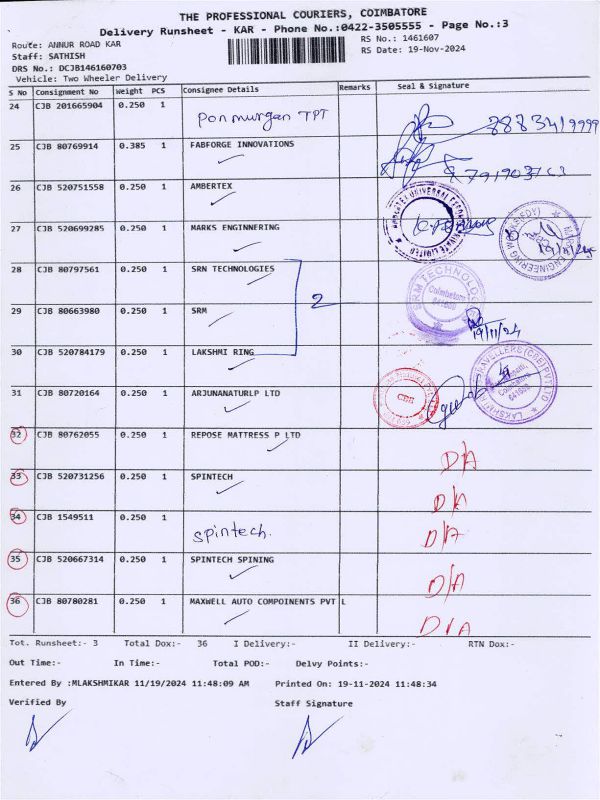 THE PROFESSIONAL COURIERS, COIMBATORE
Delivery Runsheet - KAR - Phone No.:0422-3505555 - Page No.:3
Route: ANNUR ROAD KAR
RS No.: 1461607
Staff: SATHISH
RS Date: 19-Nov-2024
DRS No.: DCJB146160703
Vehicle: Two Wheeler Delivery
S No Consignment No Weight PCS Consignee Details Remarks Seal & Signature
24 CJB 201665904 0.250 1 Ponmurgan TPT
25 CJB 80769914 0.385 1 FABFORGE INNOVATIONS
26 CJB 520751558 0.250 1 AMBERTEX
27 CJB 520699285 0.250 1 MARKS ENGINNERING
28 CJB 80797561 0.250 1 SRN TECHNOLOGIES
2
29 CJB 80663980 0.250 1 SRM
19/11/24
30 CJB 520784179 0.250 1 LAKSHMI RING
31 CJB 80720164 0.250 1 ARJUNANATURLP LTD
CBE
32 CJB 80762055 0.250 1 REPOSE MATTRESS P LTD D/A
33 CJB 520731256 0.250 1 SPINTECH D/A
34 CJB 1549511 0.250 1 Spintech. D/A
35 CJB 520667314 0.250 1 SPINTECH SPINING D/A
36 CJB 80780281 0.250 1 MAXWELL AUTO COMPOINENTS PVT L D/A
Tot. Runsheet:- 3 Total Dox:- 36 I Delivery:- II Delivery:- RTN Dox:-
Out Time:- In Time:- Total POD:- Delvy Points:-
Entered By :MLAKSHMIKAR 11/19/2024 11:48:09 AM Printed On: 19-11-2024 11:48:34
Verified By Staff Signature